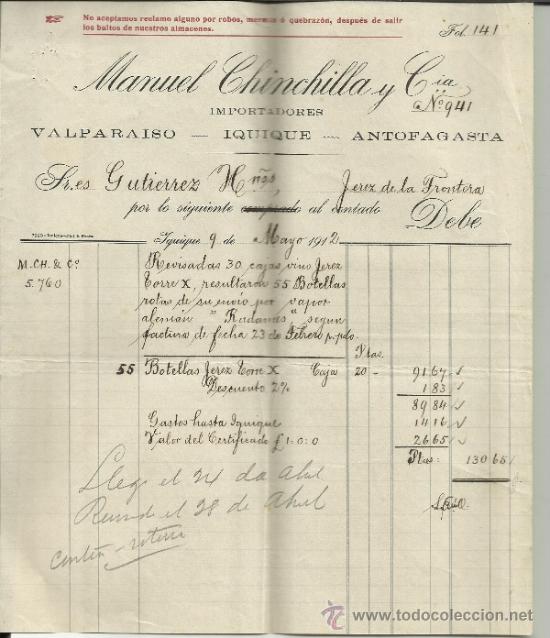 No aceptamos reclamo alguno por robos, mermas ó quebrazón, después de salir
los bultos de nuestros almacenes.
Fol. 141
Manuel Chinchilla y Cia
Nº 941
IMPORTADORES
VALPARAISO — IQUIQUE — ANTOFAGASTA
Sr.es Gutierrez Hnos, Jerez de la Frontera
por lo siguiente comprado al contado Debe
Iquique 9 de Mayo 1912
M.CH. & Cº
5.760
Revisadas 30 cajas vino Jerez
Torre X, resultaron 55 Botellas
rotas de su envio por vapor
alemán "Radames", segun
factura de fecha 23 de Febrero p. pdo.
Ptas.
55 Botellas Jerez Torre X Caja 20- 91 67
Descuento 2% 1 83
89 84
Gastos hasta Iquique 14 16
Valor del Certificado £1-0:0 26 65
Ptas: 130 65
Llegó el 24 de Abril
el 28 de Abril
todocoleccion
www.todocoleccion.net